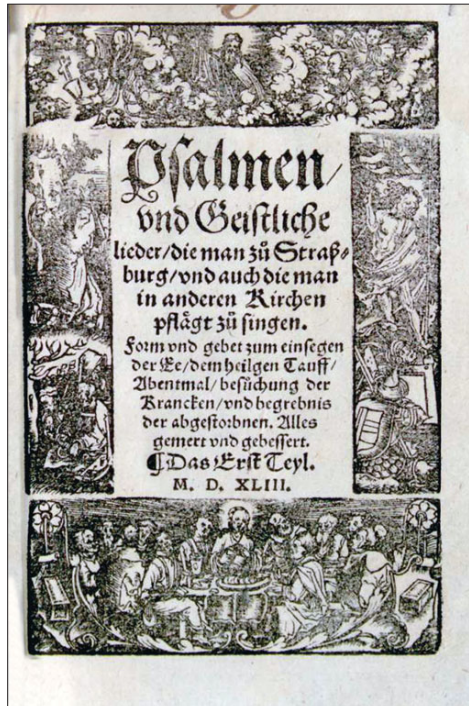 Psalmen/
vnd Geistliche
lieder/die man zů Straß⸗
burg/vnd auch die man
in anderen Kirchen
pflägt zů singen.
Form vnd gebet zum einsegen
der Ee/dem heilgen Tauff/
Abentmal/besůchung der
Krancken/vnd begrebnis
der abgestorbnen. Alles
gemert vnd gebessert.
¶Das Erst Teyl.
M. D. XLIII.